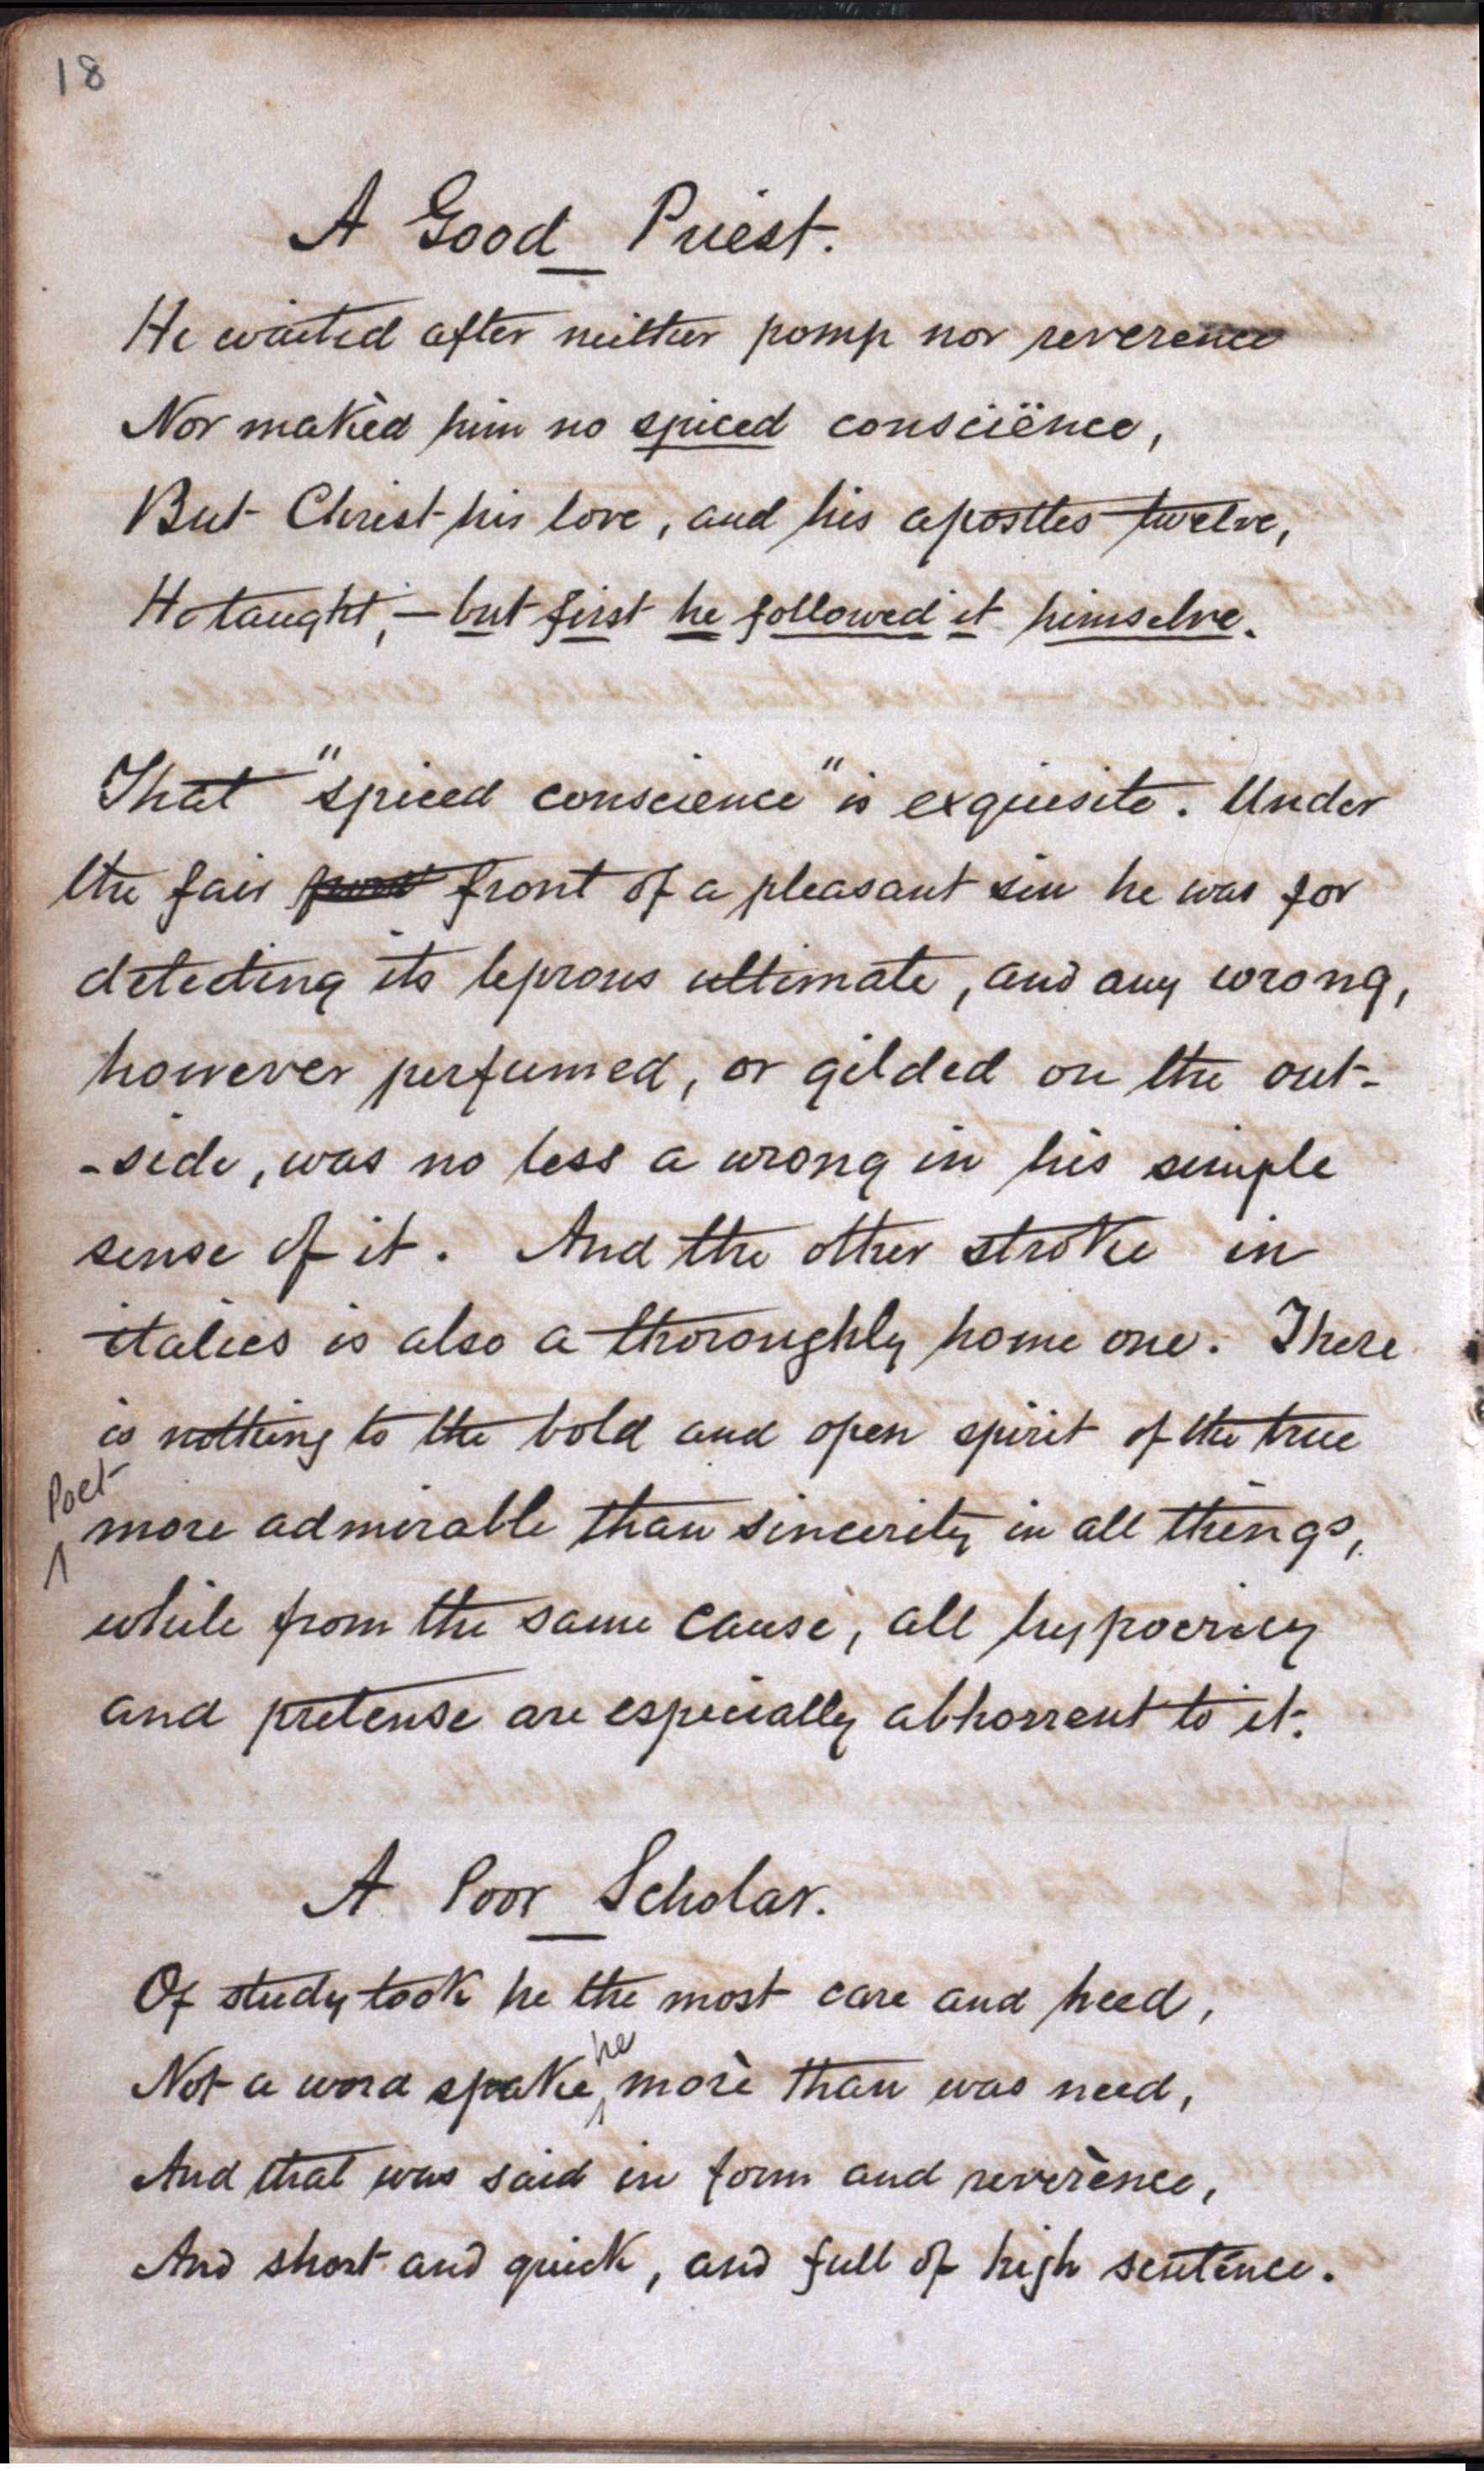 18
A Good Priest.
He waited after neither pomp nor reverence
Nor makèd him no spiced consciënce,
But Christ his love, and his apostles twelve,
He taught, – but first he followed it himselve.
That "spiced conscience" is exquisite. Under
the fair front of a pleasant sin he was for
detecting its leprous ultimate, and any wrong,
however perfumed, or gilded on the out-
-side, was no less a wrong in his simple
sense of it. And the other stroke in
italics is also a thoroughly home one. There
is nothing to the bold and open spirit of the true
Poet
more admirable than sincerity in all things,
while from the same cause, all hypocricy
and pretense are especially abhorrent to it.
A Poor Scholar.
Of study took he the most care and heed,
Not a word spake he morè than was need,
And that was said in form and reverènce,
And short and quick, and full of high sentènce.